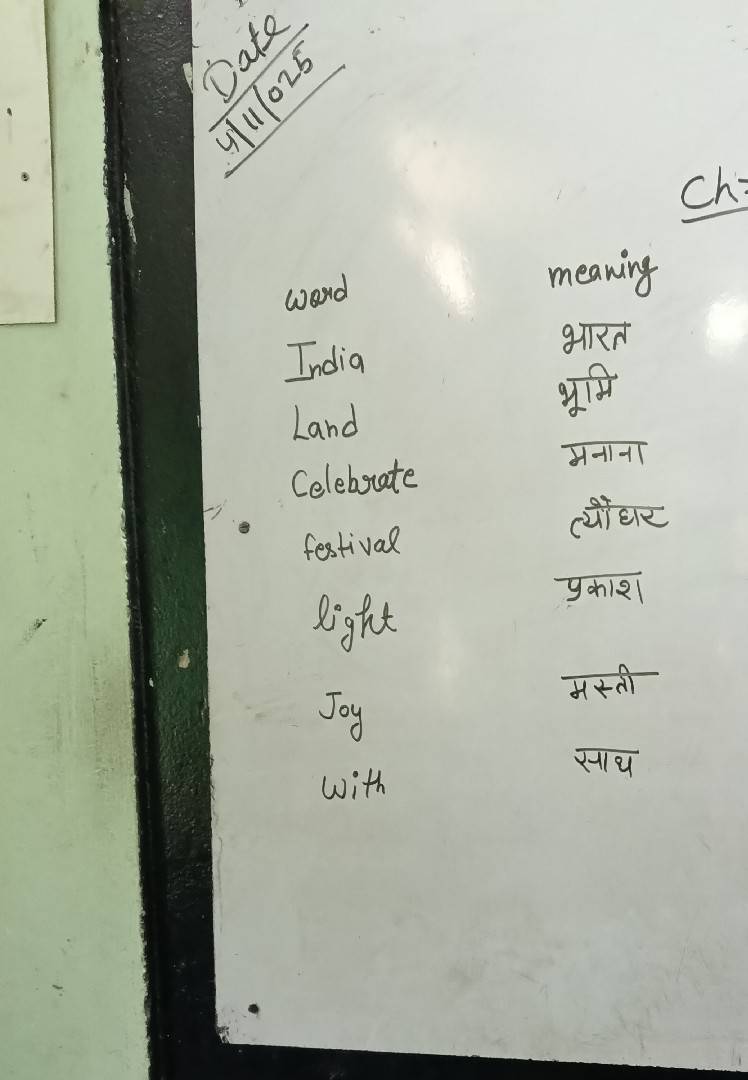 Date
4/11/025
Ch:
word meaning
India भारत
Land भूमि
Celebrate मनाना
festival त्यौंधार
light प्रकाश
Joy मस्ती
With साथ